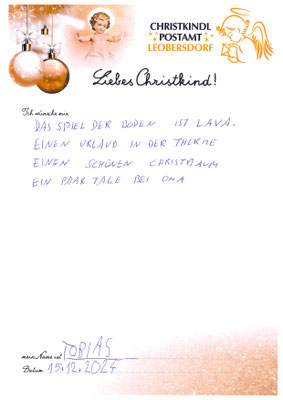 CHRISTKINDL
POSTAMT
LEOBERSDORF
Liebes Christkind!
Ich wünsche mir
DAS SPIEL DER BODEN IST LAVA.
EINEN URLAUB IN DER THERME
EINEN SCHÖNEN CHRISTBAUM
EIN PAAR TAGE BEI OMA
mein Name ist TOBIAS
Datum 15.12.2024